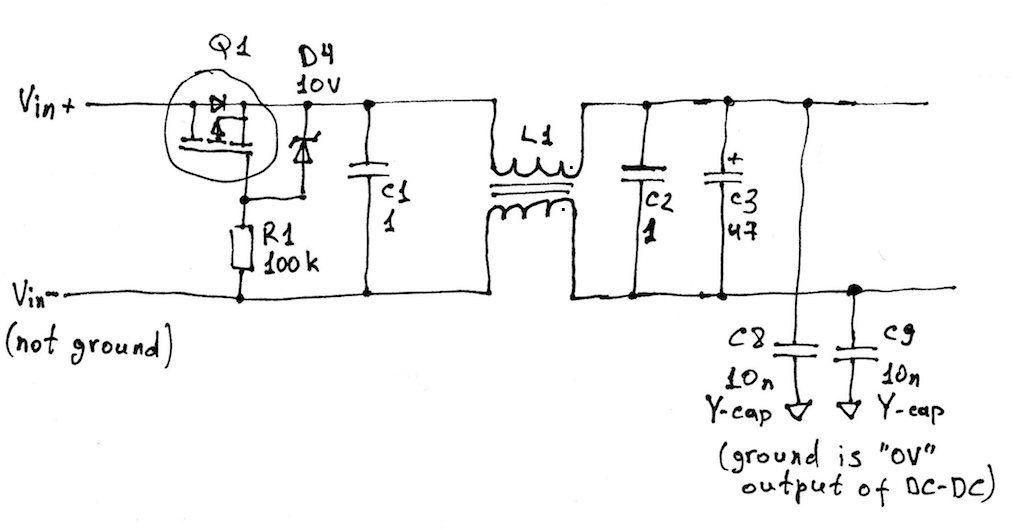 Q1
D4
10V
Vin+
L1
C1
1
C2
1
+
C3
47
R1
100k
Vin-
(not ground)
C8
10n
Y-cap
C9
10n
Y-cap
(ground is "0V"
output of DC-DC)